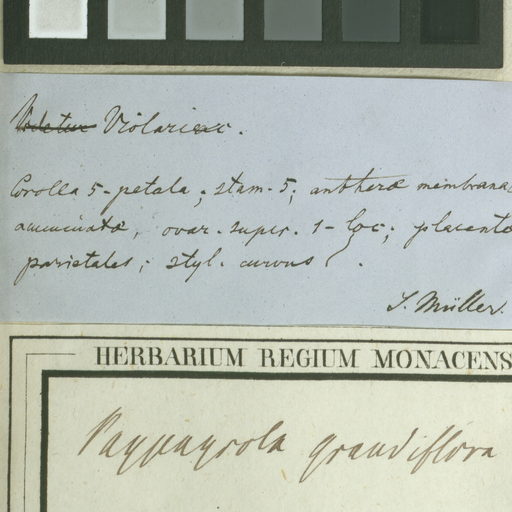 Videtur Violarieae.
Corolla 5-petala; stam. 5; antherae membrana
acuminatae, ovar. super. 1-loc; placentae
parietales; styl. curvus.
J. Müller.
HERBARIUM REGIUM MONACENS
Paypayrola grandiflora